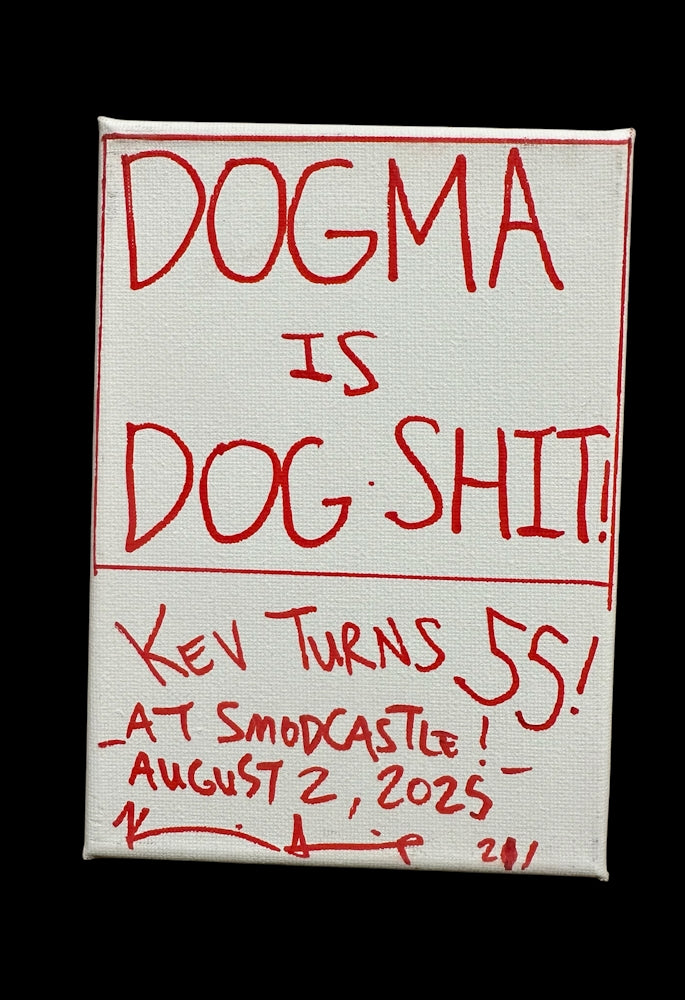 DOGMA
IS
DOG SHIT!
KEV TURNS 55!
AT SMODCASTLE!
AUGUST 2, 2025